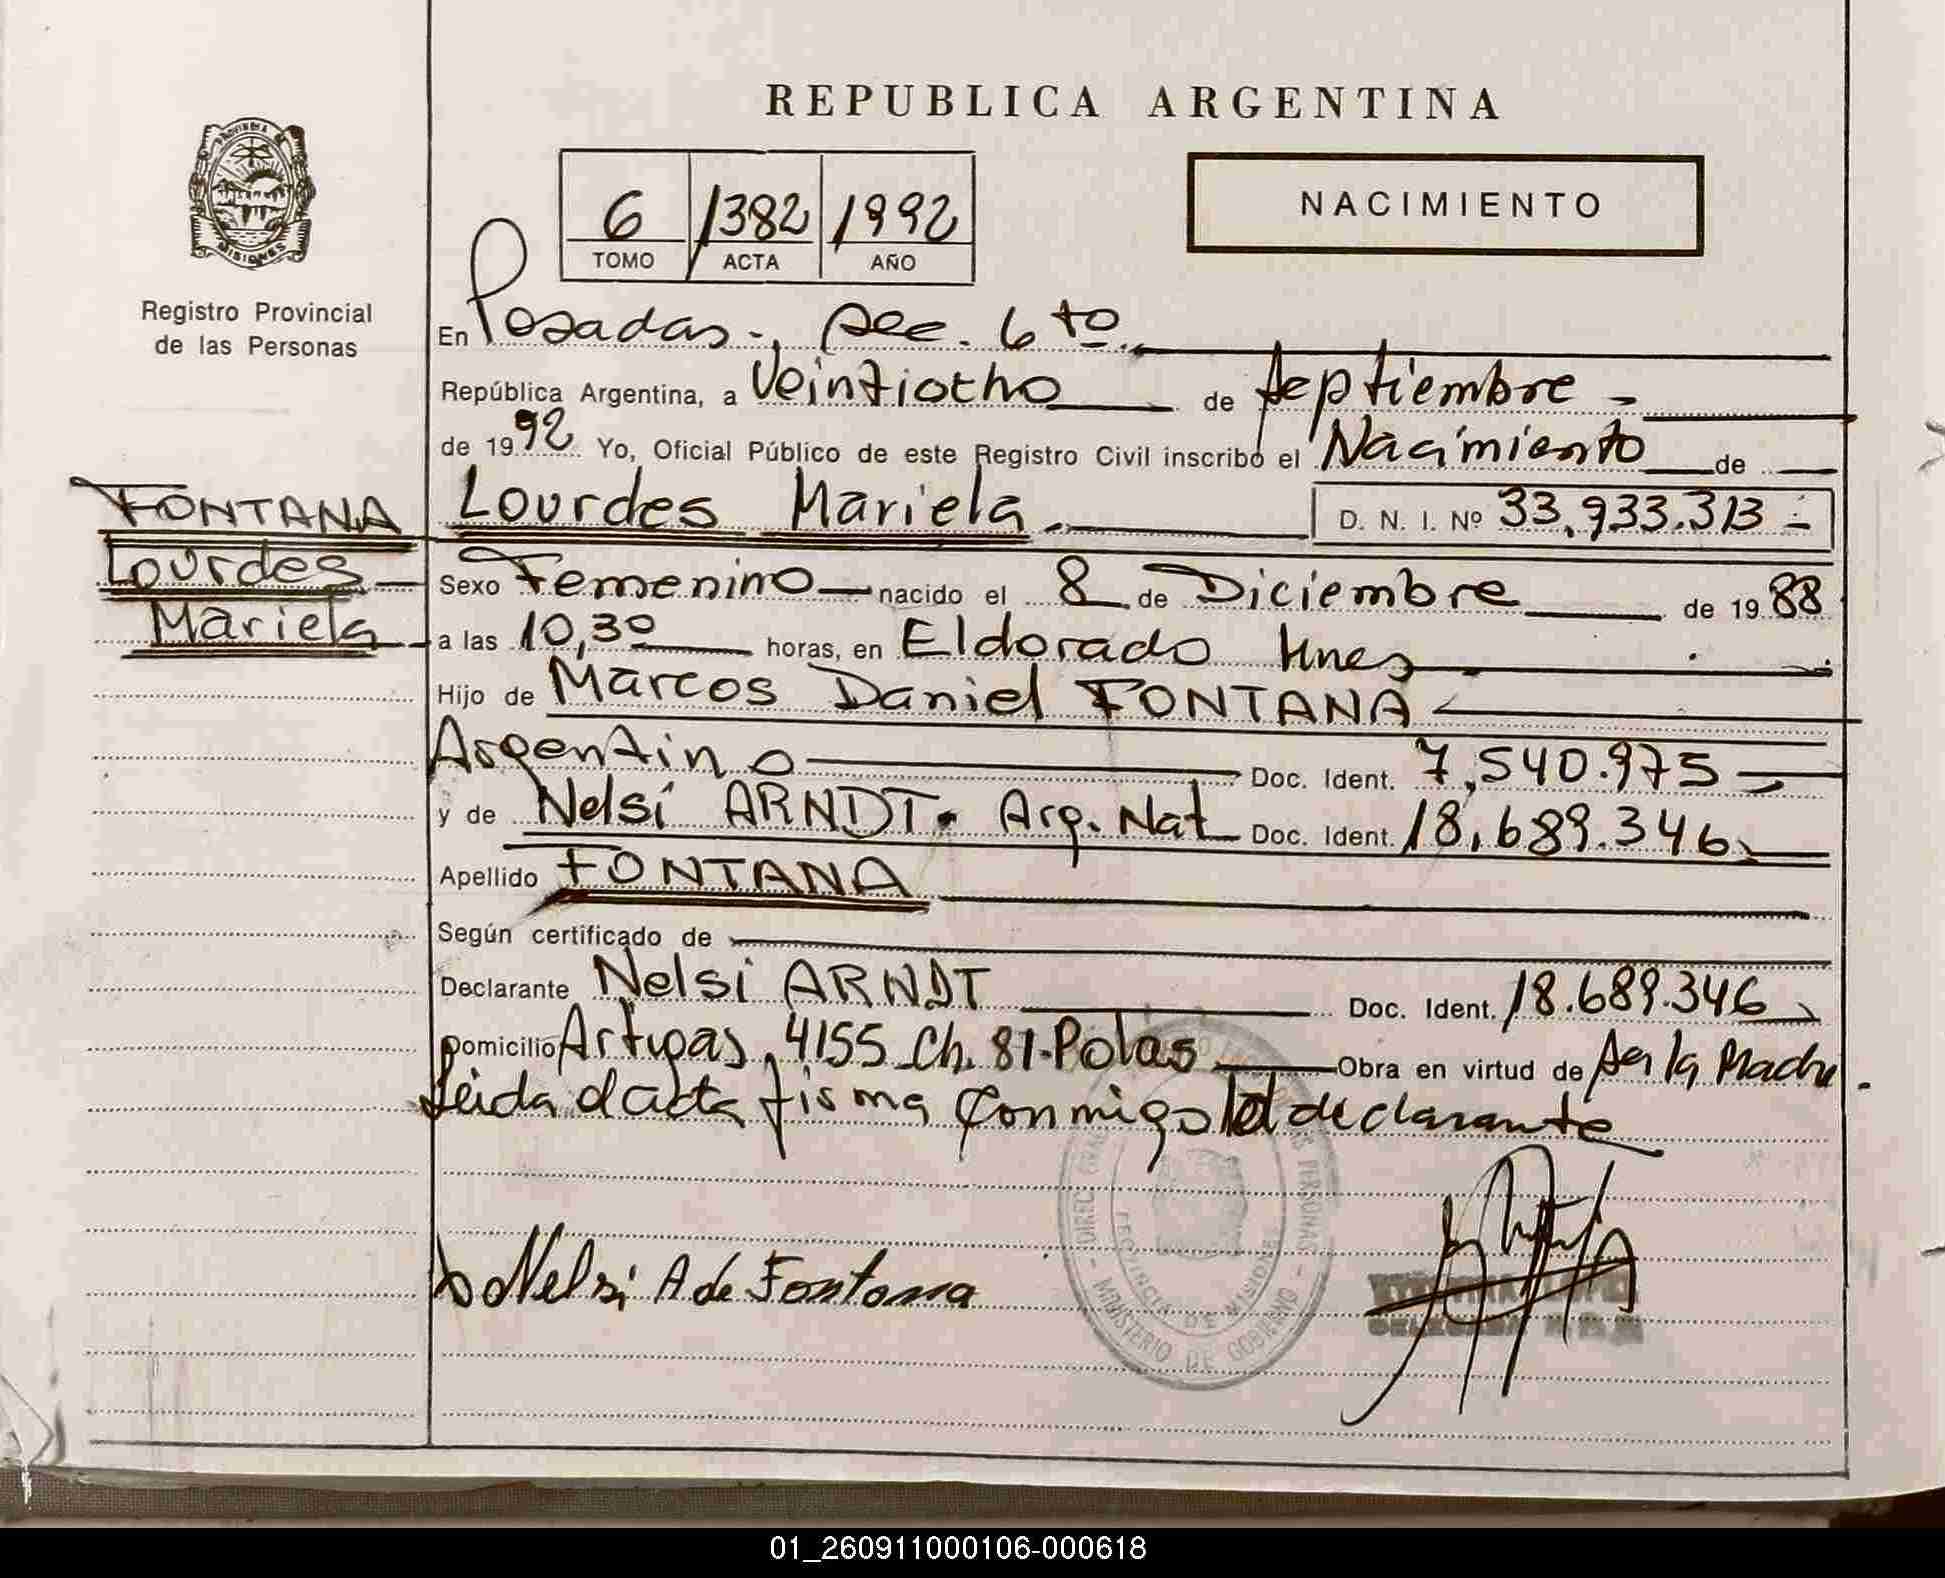 REPUBLICA ARGENTINA
NACIMIENTO
6 1382 1992
TOMO ACTA AÑO
PROVINCIA DE MISIONES
Registro Provincial
de las Personas
En Posadas-, Sec. 6to.
República Argentina, a Veintiocho de Septiembre -
de 1992 Yo, Oficial Público de este Registro Civil inscribo el Nacimiento de
FONTANA
Lourdes
Mariela
Lourdes Mariela.- D. N. I. Nº 33.933.313-
Sexo Femenino nacido el 8 de Diciembre de 1988
a las 10,30 horas, en Eldorado Mnes
Hijo de Marcos Daniel FONTANA
Argentino Doc. Ident. 7.540.975
y de Nelsi ARNDT. Arg. Nat Doc. Ident. 18.689.346
Apellido FONTANA
Según certificado de
Declarante Nelsi ARNDT Doc. Ident. 18.689.346
Domicilio Artigas, 4155 Ch. 81-Pdas Obra en virtud de Ser la Madre.
Leida el acta firma conmigo la declarante
Nelsi A de Fontana
PROVINCIA DE MISIONES
MINISTERIO DE GOBIERNO
01_260911000106-000618